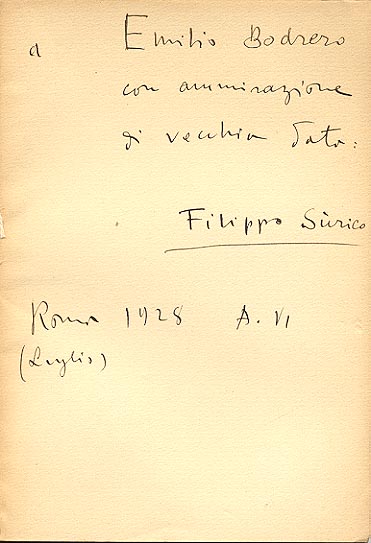 a Emilio Bodrero
con ammirazione
di vecchia data:
Filippo Sùrico
Roma 1928 A. VI
(Luglio)